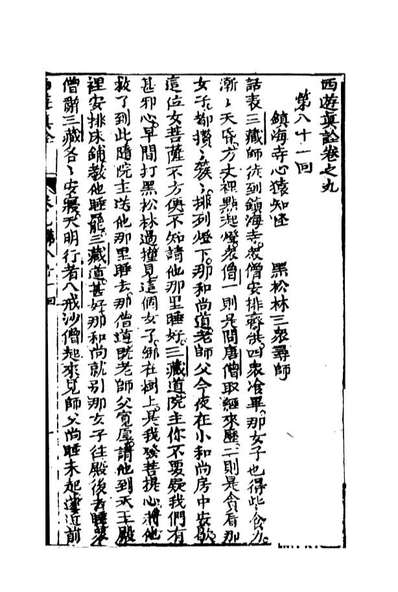 西遊真詮卷之九
第八十一回
鎮海寺心猿知怪　黑松林三衆尋師
話表三藏師徒到鎮海寺衆僧安排齋供四衆飡畢那女子也得些食力
漸々天昏方丈裡點起燈衆僧一則是問唐僧取經來歷二則是貪看那
女子都攢々簇々排列燈下那和尚道老師父今夜在小和尚房中安歇
這位女菩薩不方便不知請他那里睡好三藏道院主你不要疑我們有
甚邪心早間打黑松林過撞見這個女子綁在樹上是我發菩提心將他
救了到此隨院主送他那里睡去那僧道既老師父寬廣請他到天王殿
裡安排床鋪教他睡罷三藏道甚好那和尚就引那女子往殿後去睡
僧辭三藏各々安寢天明行者八戒沙僧起來見師父尚睡未起近前